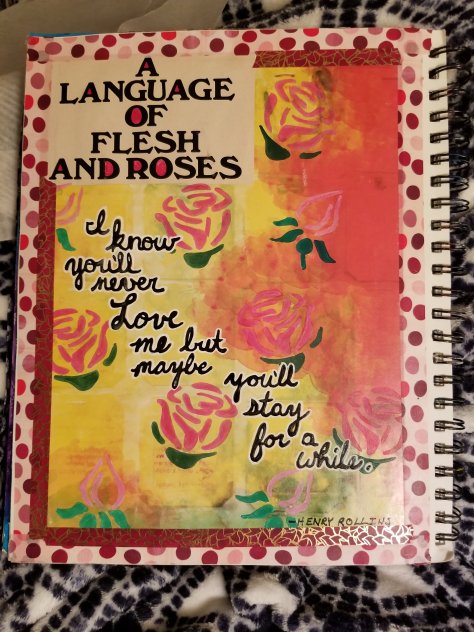 A
LANGUAGE
OF
FLESH
AND ROSES
I
know
you'll
never
Love
me but
maybe
you'll
stay
for a
while.
-HENRY ROLLINS